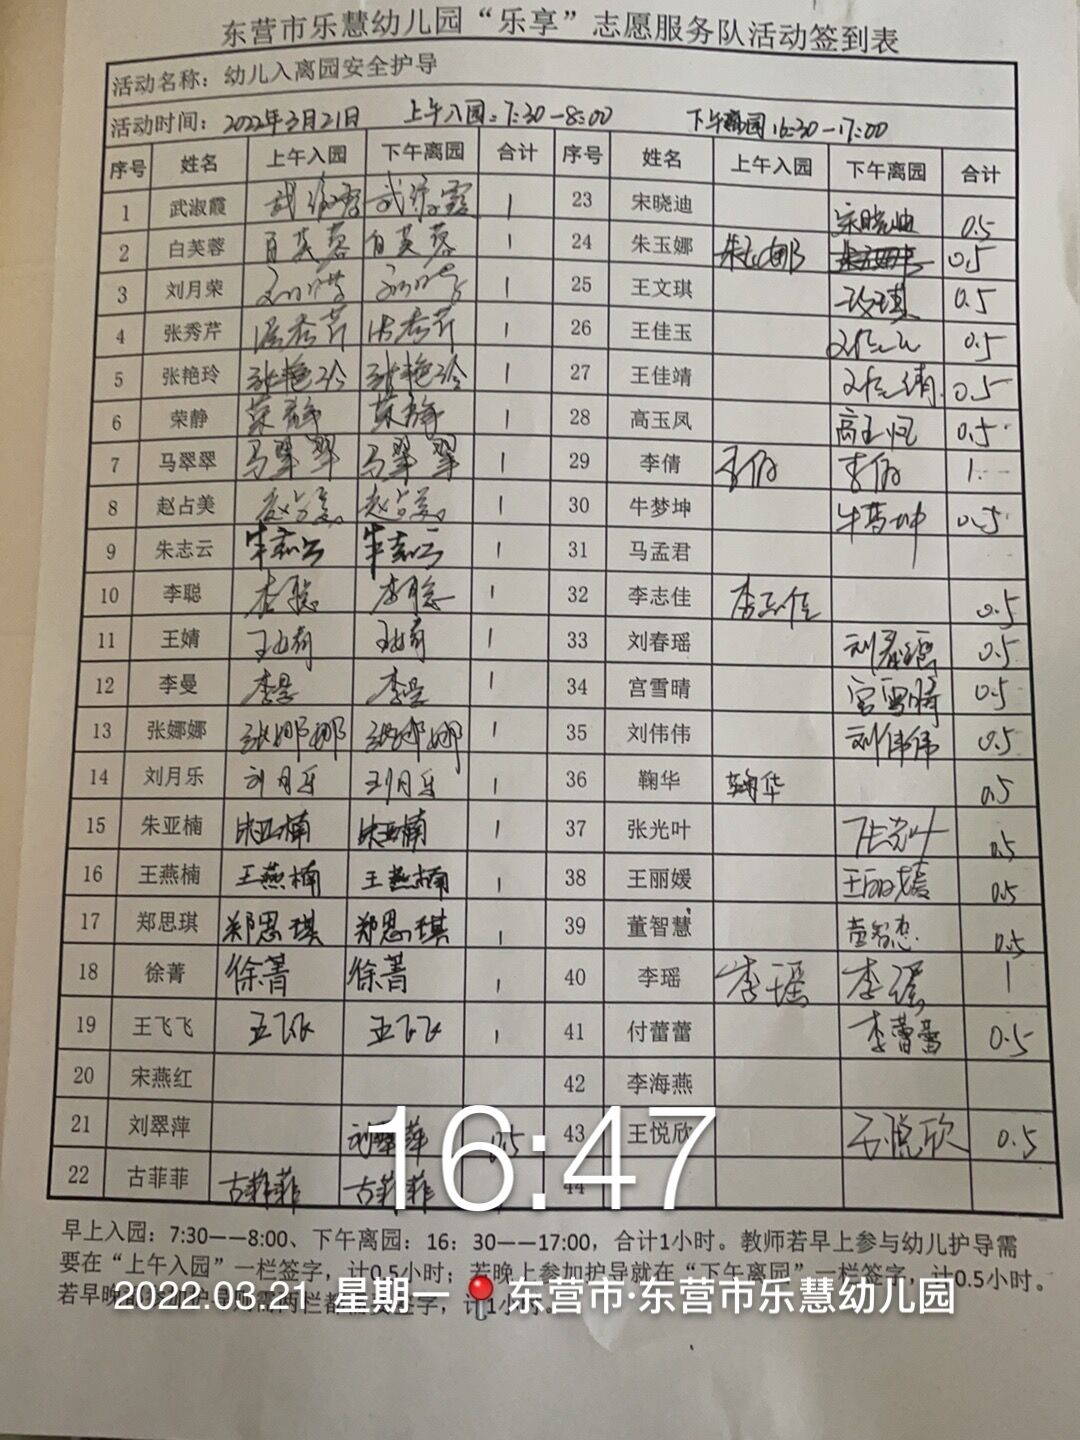 东营市乐慧幼儿园“乐享”志愿服务队活动签到表
活动名称：幼儿入离园安全护导
活动时间：2022年3月21日 上午入园：7:30-8:00 下午离园16:30-17:00
序号 姓名 上午入园 下午离园 合计 序号 姓名 上午入园 下午离园 合计
1 武淑霞 武淑霞 武淑霞 1 23 宋晓迪 宋晓迪 0.5
2 白芙蓉 白芙蓉 白芙蓉 1 24 朱玉娜 朱玉娜 0.5
3 刘月荣 1 25 王文琪 文琪 0.5
4 张秀芹 张秀芹 张秀芹 1 26 王佳玉 王佳玉 0.5
5 张艳玲 张艳玲 张艳玲 1 27 王佳靖 王佳靖 0.5
6 荣静 荣静 荣静 1 28 高玉凤 高玉凤 0.5
7 马翠翠 马翠翠 马翠翠 1 29 李倩 李倩 李倩 1
8 赵占美 赵占美 赵占美 1 30 牛梦坤 牛梦坤 0.5
9 朱志云 朱志云 朱志云 1 31 马孟君
10 李聪 李聪 李聪 1 32 李志佳 李志佳 0.5
11 王婧 王婧 王婧 1 33 刘春瑶 刘春瑶 0.5
12 李曼 李曼 李曼 1 34 宫雪晴 宫雪晴 0.5
13 张娜娜 张娜娜 张娜娜 1 35 刘伟伟 刘伟伟 0.5
14 刘月乐 刘月乐 刘月乐 1 36 鞠华 鞠华 0.5
15 朱亚楠 朱亚楠 朱亚楠 1 37 张光叶 张光叶 0.5
16 王燕楠 王燕楠 王燕楠 1 38 王丽媛 王丽媛 0.5
17 郑思琪 郑思琪 郑思琪 1 39 董智慧 董智慧 0.5
18 徐菁 徐菁 徐菁 1 40 李瑶 李瑶 李瑶 1
19 王飞飞 王飞飞 王飞飞 1 41 付蕾蕾 李蕾蕾 0.5
20 宋燕红 42 李海燕
21 刘翠萍 刘翠萍 0.5 43 王悦欣 王悦欣 0.5
22 古菲菲 古菲菲 古菲菲 44
16:47
早上入园：7:30——8:00、下午离园：16：30——17:00，合计1小时。教师若早上参与幼儿护导需
要在“上午入园”一栏签字，计0.5小时；若晚上参加护导就在“下午离园”一栏签字，计0.5小时。
若早晚都参加护导需两栏都需要签字，计1小时。
2022.03.21 星期一 东营市·东营市乐慧幼儿园